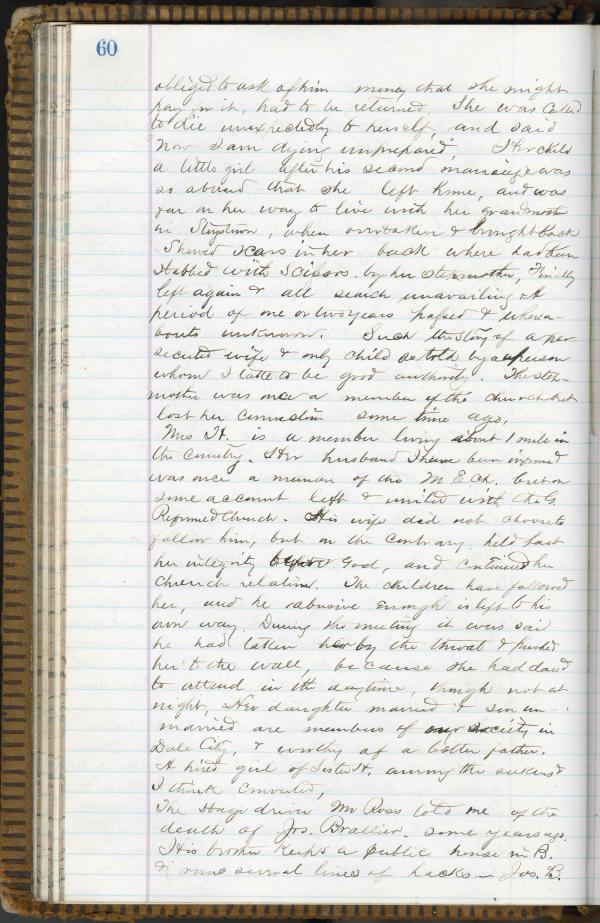 60
obliged to ask of him money that she might
pay for it, had to be returned. She was called
to die unexpectedly to herself, and said
"Now I am dying unprepared". Her child
a little girl after his second marriage was
so abused that she left home, and was
far on her way to live with her grandmother
in Stoystown, when overtaken & brought back
Showed scars in her back where had been
stabbed with scissors by her stepmother, Finally
left again & all search unavailing. A
period of one or two years passed & wherea-
bouts unknown. Such the story of a per-
secuted wife & only child as told by a person
whom I take to be good authority. The step-
mother was once a member of the church but
lost her connection some time ago.
Mrs H. is a member living about 1 mile in
the country. Her husband I have been informed
was once a member of the M. E. Ch. but on
some account left & united with the G.
Reformed Church. His wife did not choose to
follow him, but on the contrary held fast
her integrity before God, and continued her
church relation. The children have followed
her, and he abusive enough is left to his
own way. During the meeting it was said
he had taken her by the throat & pushed
her to the wall, because she had dared
to attend in the daytime, though not at
night. Her daughter married & son un-
married are members of our society in
Dale City, & worthy of a better father.
A hired girl of Sister H. among the seekers &
I think converted,
The stage driver Mr Ross told me of the
death of Jos. Brallier some years ago.
His brother keeps a public house in B.
& runs several lines of hacks Jos. B.